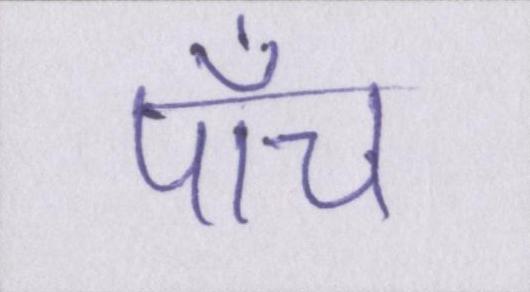 पाँच